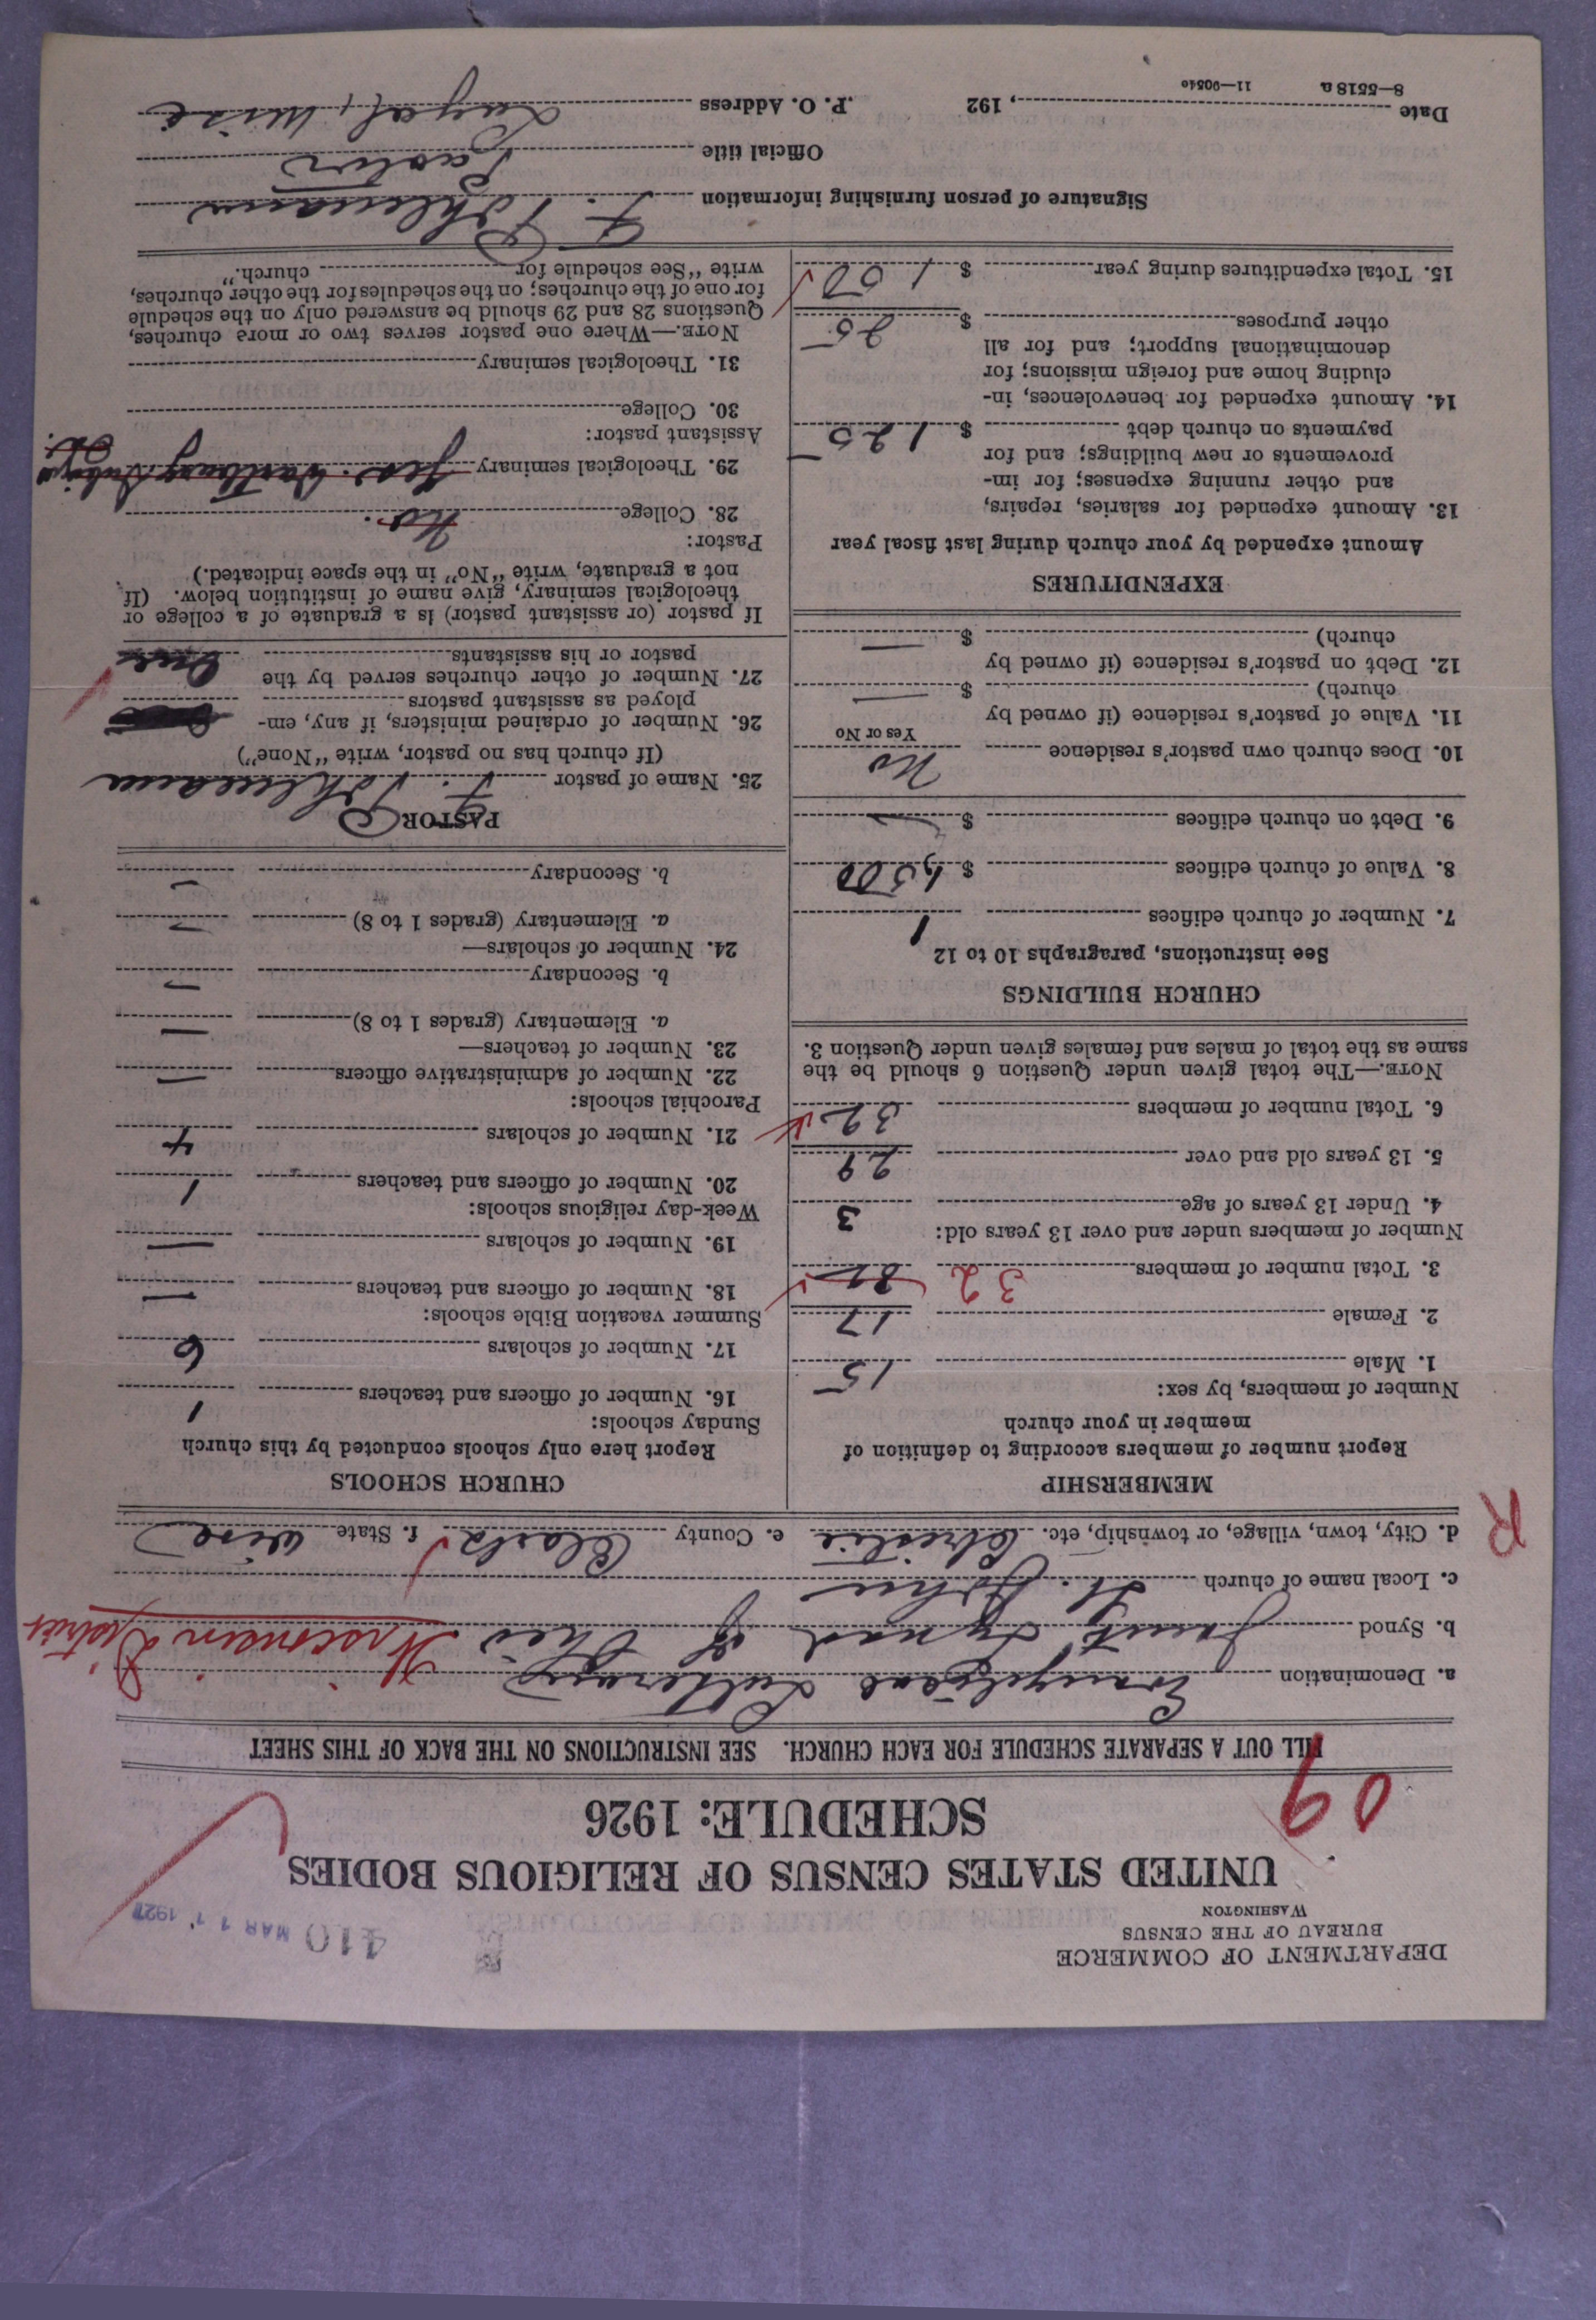 DEPARTMENT OF COMMERCE
BUREAU OF THE CENSUS
WASHINGTON
410 MAR 11 1927
UNITED STATES CENSUS OF RELIGIOUS BODIES
SCHEDULE: 1926
09
FILL OUT A SEPARATE SCHEDULE FOR EACH CHURCH. SEE INSTRUCTIONS ON THE BACK OF THIS SHEET
a. Denomination Evangelical Lutheran
b. Synod Joint Synod of Ohio Wisconsin District
c. Local name of church St. John
d. City, town, village, or township, etc. Christie e. County Clark f. State Wisc
R
MEMBERSHIP
Report number of members according to definition of
member in your church
Number of members, by sex:
1. Male 15
2. Female 17
3. Total number of members 32
Number of members under and over 13 years old:
4. Under 13 years of age 3
5. 13 years old and over 29
6. Total number of members 32
NOTE.—The total given under Question 6 should be the
same as the total of males and females given under Question 3.
CHURCH BUILDINGS
See instructions, paragraphs 10 to 12
7. Number of church edifices 1
8. Value of church edifices $ 1,500
9. Debt on church edifices $ —
10. Does church own pastor's residence No
Yes or No
11. Value of pastor's residence (if owned by
church) $ —
12. Debt on pastor's residence (if owned by
church) $ —
EXPENDITURES
Amount expended by your church during last fiscal year
13. Amount expended for salaries, repairs,
and other running expenses; for im-
provements or new buildings; and for
payments on church debt $ 125
14. Amount expended for benevolences, in-
cluding home and foreign missions; for
denominational support; and for all
other purposes $ 25
15. Total expenditures during year $ 150
CHURCH SCHOOLS
Report here only schools conducted by this church
Sunday schools:
16. Number of officers and teachers 1
17. Number of scholars 6
Summer vacation Bible schools:
18. Number of officers and teachers —
19. Number of scholars —
Week-day religious schools:
20. Number of officers and teachers 1
21. Number of scholars 4
Parochial schools:
22. Number of administrative officers —
23. Number of teachers—
a. Elementary (grades 1 to 8) —
b. Secondary —
24. Number of scholars—
a. Elementary (grades 1 to 8) —
b. Secondary —
PASTOR
25. Name of pastor F. Pohlmann
(If church has no pastor, write "None")
26. Number of ordained ministers, if any, em-
ployed as assistant pastors
27. Number of other churches served by the
pastor or his assistants One
If pastor (or assistant pastor) is a graduate of a college or
theological seminary, give name of institution below. (If
not a graduate, write "No" in the space indicated.)
Pastor:
28. College No.
29. Theological seminary Yes. Wartburg Dubuque Ia.
Assistant pastor:
30. College
31. Theological seminary
NOTE.—Where one pastor serves two or more churches,
Questions 28 and 29 should be answered only on the schedule
for one of the churches; on the schedules for the other churches,
write "See schedule for church."
Signature of person furnishing information F. Pohlmann
Official title Pastor
Date , 192 P. O. Address Loyal, Wisc
8—5518 a 11—9054c